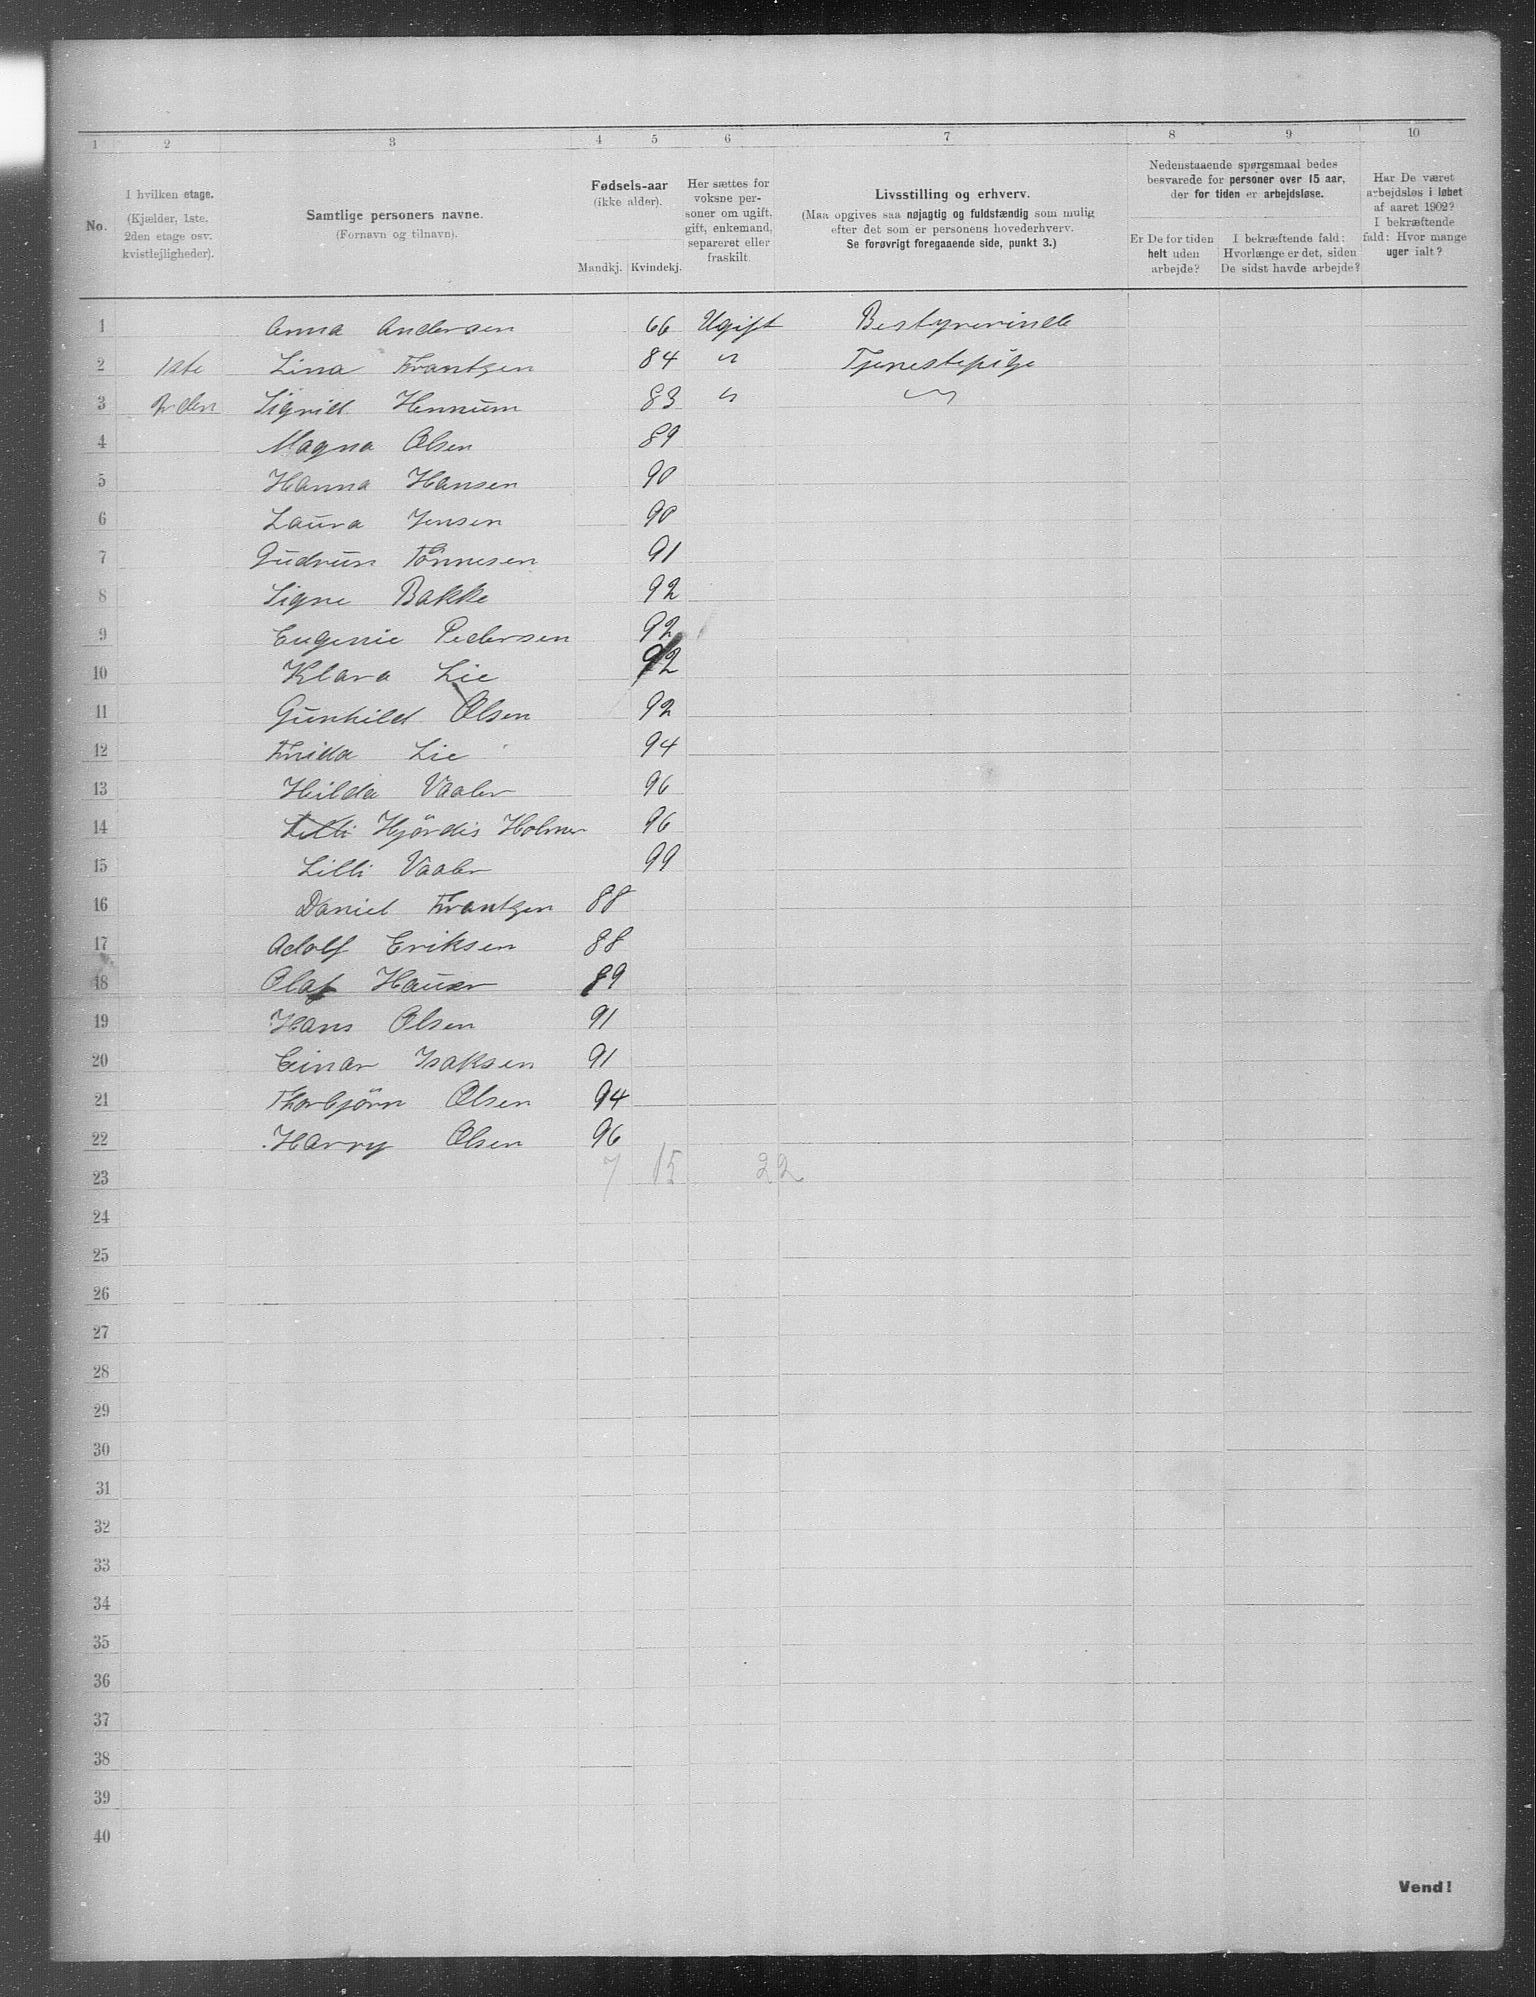 1 2 3 4 5 6 7 8 9 10
No.
I hvilken etage.
(Kjælder, 1ste.
2den etage osv.
kvistlejligheder).
Samtlige personers navne.
(Fornavn og tilnavn).
Fødsels-aar
(ikke alder).
Mandkj. Kvindekj.
Her sættes for
voksne per-
soner om ugift,
gift, enkemand,
separeret eller
fraskilt.
Livsstilling og erhverv.
(Maa opgives saa nøjagtig og fuldstændig som mulig
efter det som er personens hovederhverv.
Se forøvrigt foregaaende side, punkt 3.)
Nedenstaaende spørgsmaal bedes
besvarede for personer over 15 aar,
der for tiden er arbejdsløse.
Er De for tiden
helt uden
arbejde?
I bekræftende fald:
Hvorlænge er det, siden
De sidst havde arbejde?
Har De været
arbejdsløs i løbet
af aaret 1902?
I bekræftende
fald: Hvor mange
uger ialt?
1 Anna Andersen 66 Ugift Bestyrerinde
2 1ste Lina Frantzen 84 " Tjenestepige
3 2den Sigrid Hennum 83 " "
4 Magna Olsen 89
5 Hanna Hansen 90
6 Laura Jensen 90
7 Gudrun Tönnesen 91
8 Signe Bakke 92
9 Eugenie Pedersen 92
10 Klara Lie 92
11 Gunhild Olsen 92
12 Frida Lie 94
13 Hilda Vaaler 96
14 Lilli Hjördis Holmer 96
15 Lilli Vaaler 99
16 Daniel Frantzen 88
17 Adolf Eriksen 88
18 Olaf Hauer 89
19 Hans Olsen 91
20 Einar Isaksen 91
21 Thorbjörn Olsen 94
22 Harry Olsen 96
23 7 15 22
24
25
26
27
28
29
30
31
32
33
34
35
36
37
38
39
40
Vend!